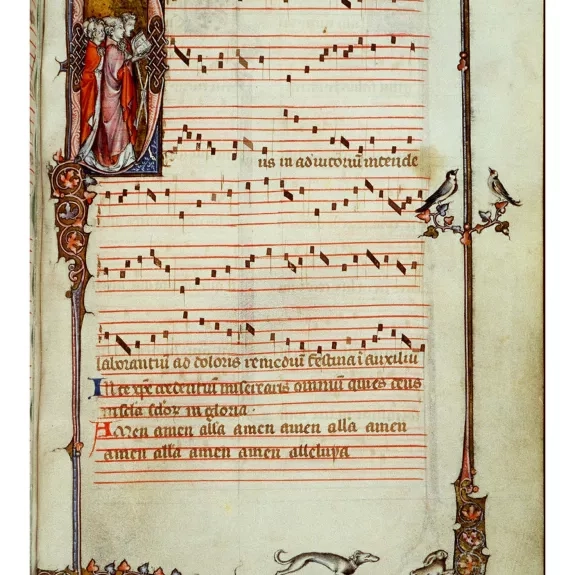 us in adiutoriū intende
laborantiū ad doloris remediū festina ī auxiliū
In te xp̄e credentiū miserearis omniū qui es deus
in secła in gloria .
Amen amen alła amen amen alła amen
amen alła amen amen alleluya